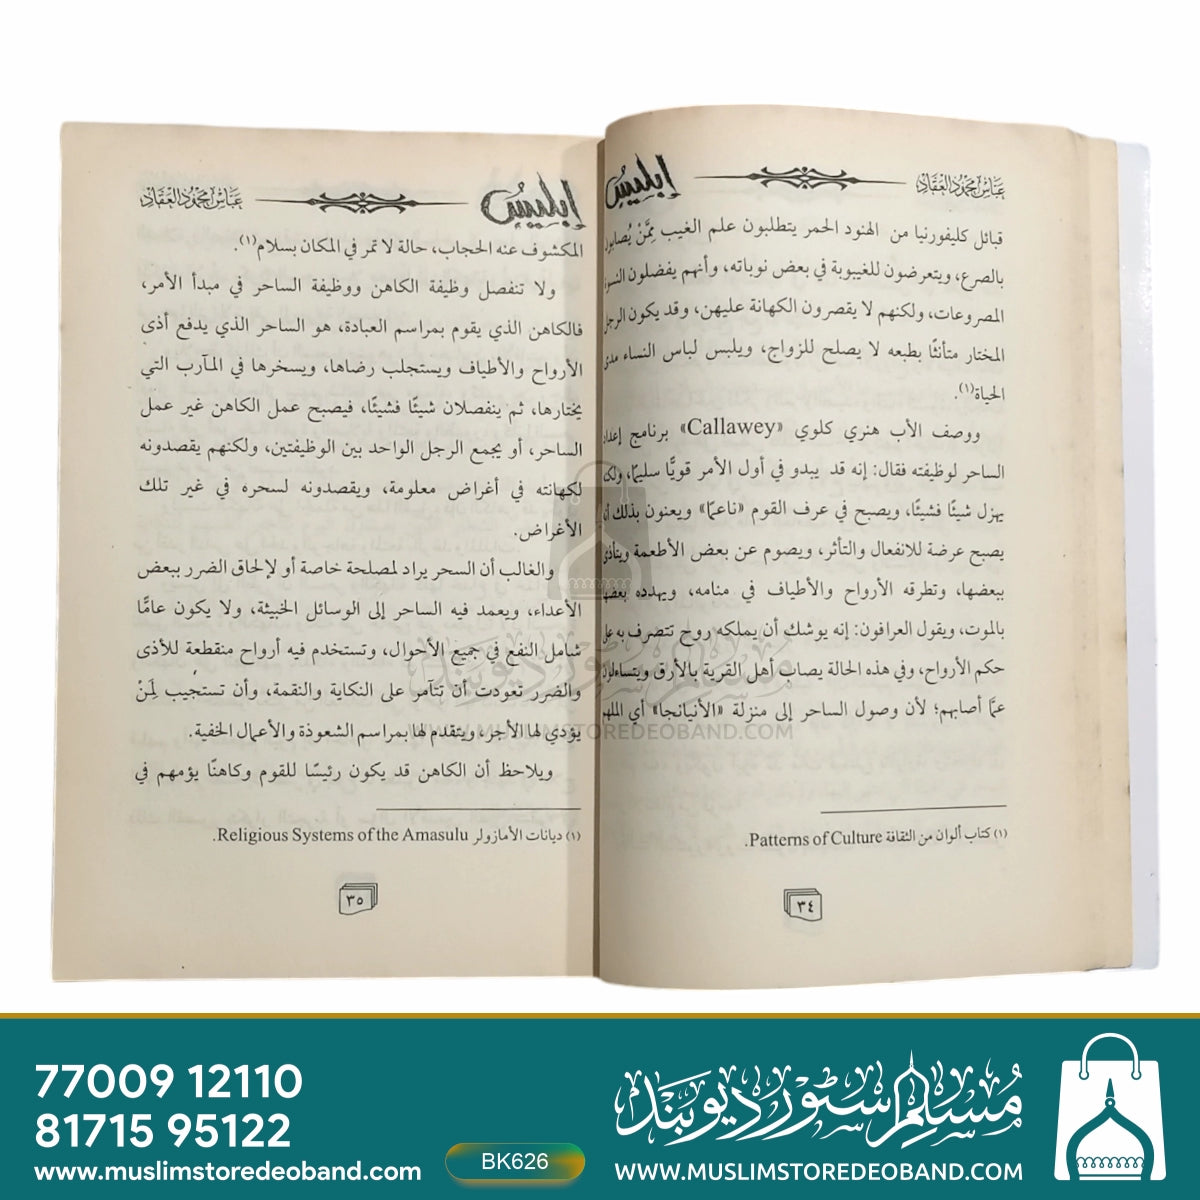 عباس محمود العقاد
إبليس
قبائل كليفورنيا من الهنود الحمر يتطلبون علم الغيب مِمَّنْ يُصابون
بالصرع، ويتعرضون للغيبوبة في بعض نوباته، وأنهم يفضلون النسوة
المصروعات، ولكنهم لا يقصرون الكهانة عليهن، وقد يكون الرجل
المختار متأنثًا بطبعه لا يصلح للزواج، ويلبس لباس النساء مدى
الحياة(١).
ووصف الأب هنري كلوي «Callawey» برنامج إعداد
الساحر لوظيفته فقال: إنه قد يبدو في أول الأمر قويًّا سليمًا، ولكنه
يهزل شيئًا فشيئًا، ويصبح في عرف القوم «ناعمًا» ويعنون بذلك أن
يصبح عرضة للانفعال والتأثر، ويصوم عن بعض الأطعمة ويتأذى
ببعضها، وتطرقه الأرواح والأطياف في منامه، ويهدده بعضها
بالموت، ويقول العرافون: إنه يوشك أن يملكه روح تتصرف به على
حكم الأرواح، وفي هذه الحالة يصاب أهل القرية بالأرق ويتساءلون
عمَّا أصابهم؛ لأن وصول الساحر إلى منزلة «الأنيانجا» أي الملهم
(١) كتاب ألوان من الثقافة Patterns of Culture.
٣٤
عباس محمود العقاد
إبليس
المكشوف عنه الحجاب، حالة لا تمر في المكان بسلام(١).
ولا تنفصل وظيفة الكاهن ووظيفة الساحر في مبدأ الأمر،
فالكاهن الذي يقوم بمراسم العبادة، هو الساحر الذي يدفع أذى
الأرواح والأطياف ويستجلب رضاها، ويسخرها في المآرب التي
يختارها، ثم ينفصلان شيئًا فشيئًا، فيصبح عمل الكاهن غير عمل
الساحر، أو يجمع الرجل الواحد بين الوظيفتين، ولكنهم يقصدونه
لكهانته في أغراض معلومة، ويقصدونه لسحره في غير تلك
الأغراض.
والغالب أن السحر يراد لمصلحة خاصة أو لإلحاق الضرر ببعض
الأعداء، ويعمد فيه الساحر إلى الوسائل الخبيثة، ولا يكون عامًّا
شامل النفع في جميع الأحوال، وتستخدم فيه أرواح منقطعة للأذى
والضرر تعودت أن تتآمر على النكاية والنقمة، وأن تستجيب لِمَنْ
يؤدي لها الأجر، ويتقدم لها بمراسم الشعوذة والأعمال الخفية.
ويلاحظ أن الكاهن قد يكون رئيسًا للقوم وكاهنًا يؤمهم في
(١) ديانات الأمازولر Religious Systems of the Amasulu.
٣٥
مسلم سٹور دیوبند
WWW.MUSLIMSTOREDEOBAND.COM
77009 12110
81715 95122
www.muslimstoredeoband.com
BK626
مسلم سٹور دیوبند
WWW.MUSLIMSTOREDEOBAND.COM